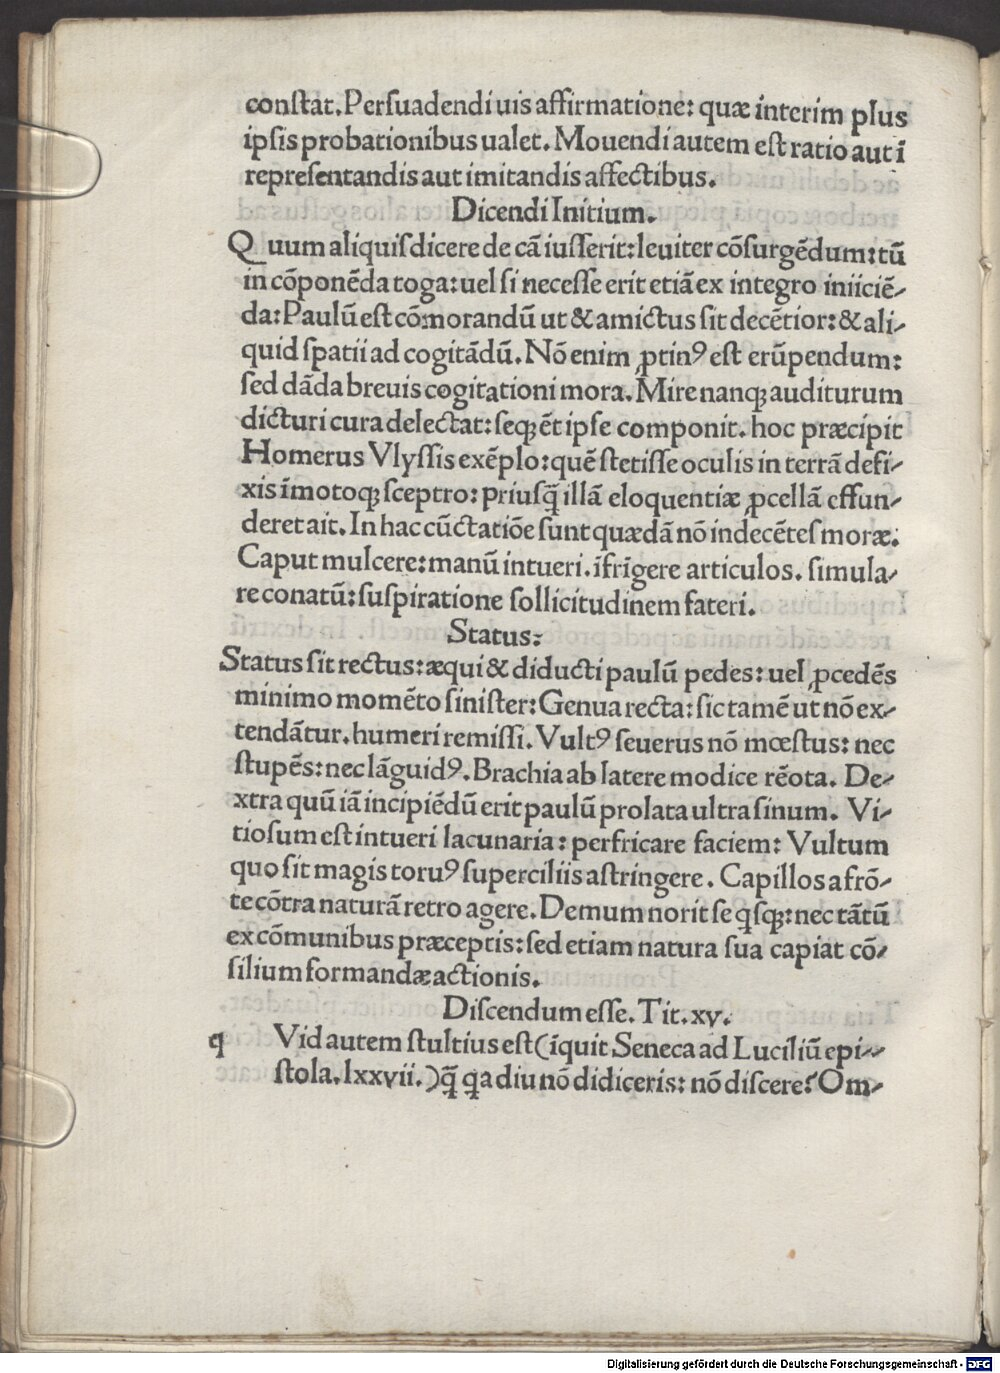 conſtat. Perſuadendi uis affirmatione: quæ interim plus
ipſis probationibus ualet. Mouendi autem eſt ratio aut ĩ
repreſentandis aut imitandis affectibus.
Dicendi Initium.
Quum aliquiſ dicere de cã iuſſerit: leuiter cõſurgẽdum: tũ
in cõponẽda toga: uel ſi neceſſe erit etiã ex integro iniiciẽ-
da: Paulũ eſt cõmorandũ ut & amictus ſit decẽtior: & ali-
quid ſpatii ad cogitãdũ. Nõ enim ꝓtinꝰ eſt erũpendum:
ſed dãda breuis cogitationi mora. Mire nanqꝫ auditurum
dicturi cura delectat: ſeqꝫ ẽt ipſe componit. hoc præcipit
Homerus Vlyſſis exẽplo: quẽ ſtetiſſe oculis in terrã defi-
xis ĩmotoqꝫ ſceptro: priuſq̃ illã eloquentiæ ꝓcellã effun-
deret ait. In hac cũctatiõe ſunt quædã nõ indecẽteſ moræ.
Caput mulcere: manũ intueri. ĩfrĩgere articulos. ſimula-
re conatũ: ſuſpiratione ſollicitudinem fateri.
Status:
Status ſit rectus: æqui & diducti paulũ pedes: uel ꝓcedẽs
minimo momẽto ſiniſter: Genua recta: ſic tamẽ ut nõ ex-
tendãtur. humeri remiſſi. Vultꝰ ſeuerus nõ mœſtus: nec
ſtupẽs: nec lãguidꝰ. Brachia ab latere modice rẽota. De-
xtra quũ iã incipiẽdũ erit paulũ prolata ultra ſinum. Vi-
tioſum eſt intueri lacunaria: perfricare faciem: Vultum
quo ſit magis toruꝰ ſuperciliis aſtringere. Capillos a frõ-
te cõtra naturã retro agere. Demum norit ſe qſqꝫ: nec tãtũ
ex cõmunibus præceptis: ſed etiam natura ſua capiat cõ-
ſilium formandæ actionis.
Diſcendum eſſe. Tit. xv.
q Vid autem ſtultius eſt (ĩquit Seneca ad Luciliũ epi-
ſtola. lxxvii.) q̃ qa diu nõ didiceris: nõ diſcere? Om-
Digitalisierung gefördert durch die Deutsche Forschungsgemeinschaft - DFG